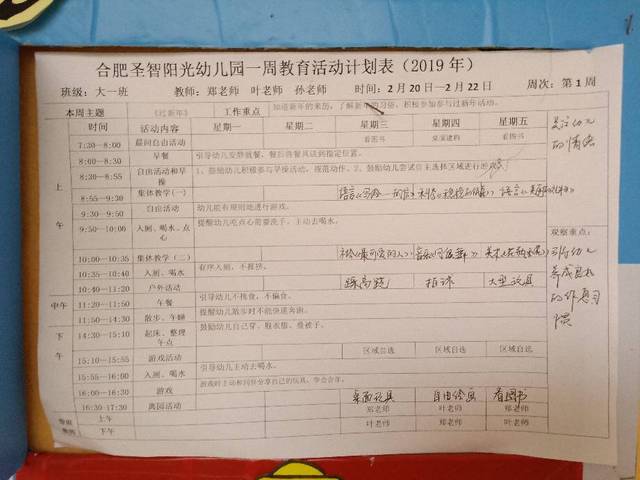 合肥圣智阳光幼儿园一周教育活动计划表（2019 年）
班级：大一班 教师：郑老师 叶老师 孙老师 时间：2 月 20 日—2 月 22 日 周次：第 1 周
本周主题 《过新年》 工作重点 知道新年的来历，了解新年的习俗，积极参加参与过新年活动。
时间 活动内容 星期一 星期二 星期三 星期四 星期五 关注幼儿的情绪
上午
7:30—8:00 晨间自由活动 看图书 桌面建构 看图书
8:00—8:30 早餐 引导幼儿安静就餐，餐后将餐具送到指定位置。
8:30—8:55 自由活动和早操 1、鼓励幼儿积极参与早操活动，规范动作。2、鼓励幼儿尝试自主选择区域进行游戏
8:55—9:30 集体教学（一）
9:30—9:50 自由活动 幼儿能有规则地进行游戏。
9:50—10:00 入厕、喝水、点心 提醒幼儿吃点心需要洗手，主动去喝水。
观察重点：
10:00—10:35 集体教学（二）
10:35—10:40 入厕、喝水 有序入厕，不推挤。
10:40—11:20 户外活动 踩高跷 拍球 大型玩具
中午
11:20—11:50 午餐 引导幼儿不挑食，不偏食。
11:50—14:30 散步、午睡 提醒幼儿散步时不能快速奔跑。
下午
14:30—15:10 起床、整理 午点 鼓励幼儿自己穿、脱衣服、叠被子。
15:10—15:55 游戏活动 区域自选 区域自选 区域自选
15:55—16:00 入厕、喝水 引导幼儿主动去喝水。
16:00—16:30 游戏 桌面玩具 自由绘画 看图书
16:30-17:30 离园活动
上午 郑老师 叶老师 郑老师
下午 叶老师 郑老师 叶老师